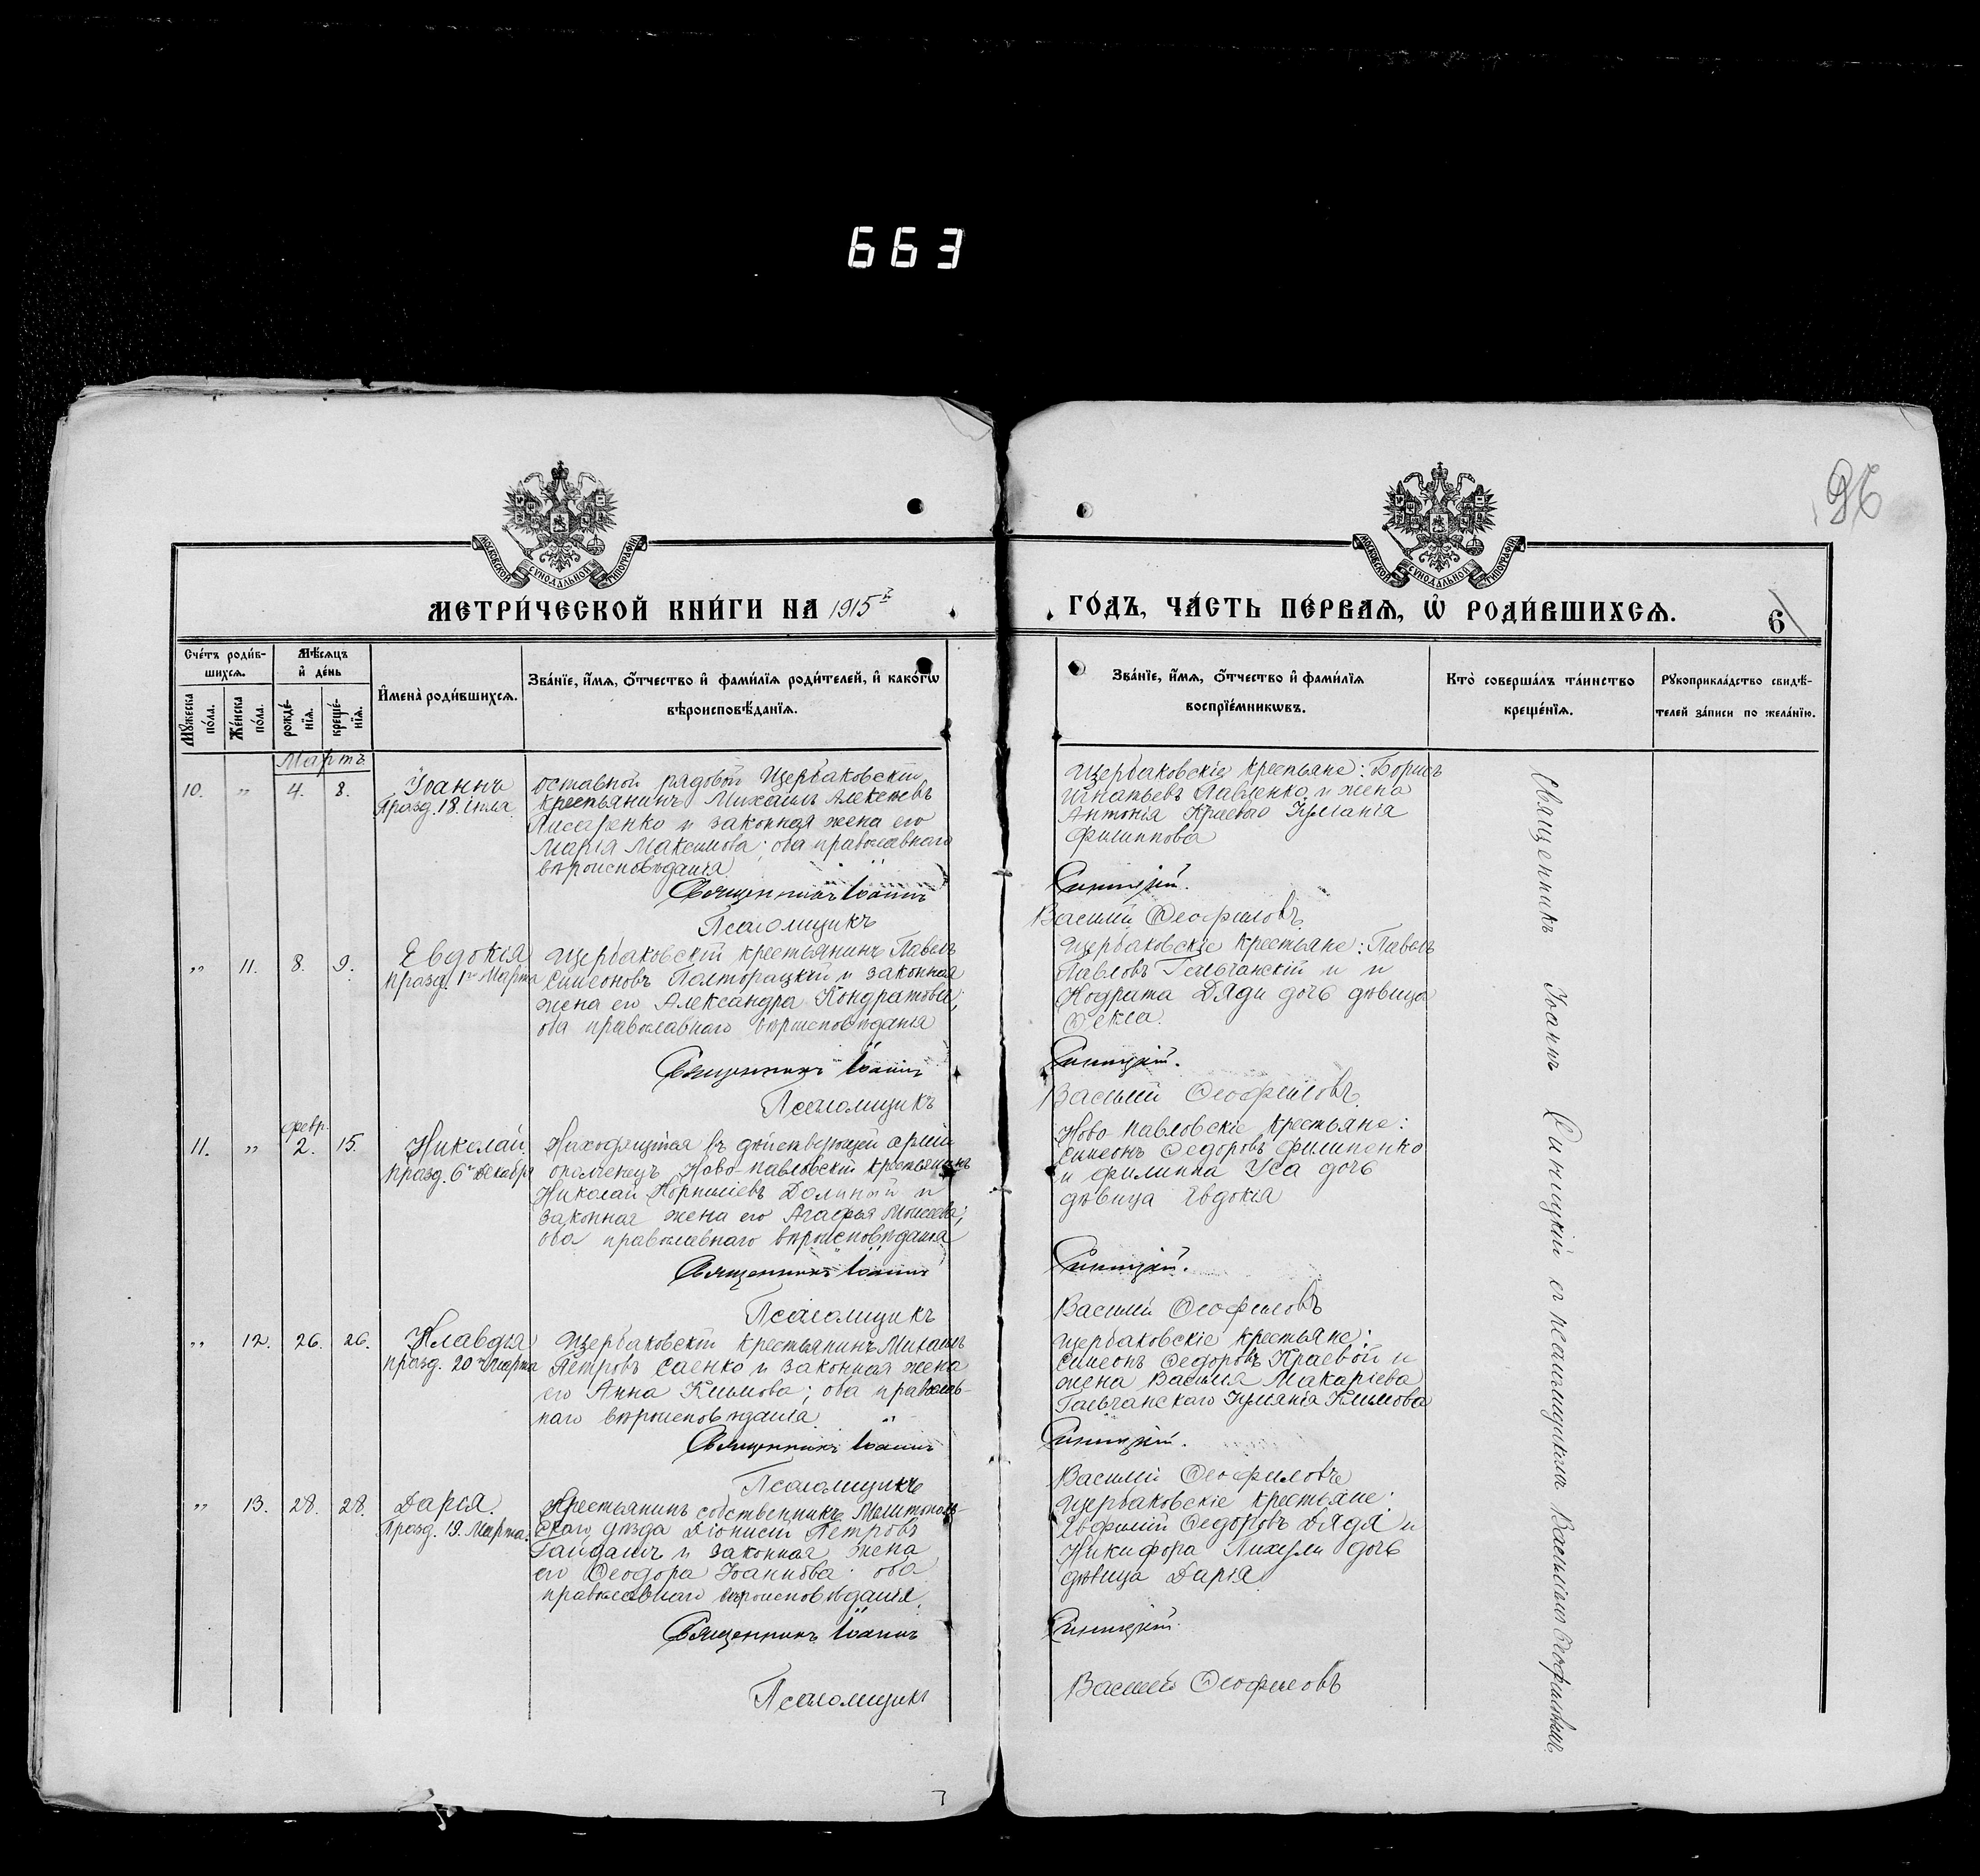 663
96
МОСКОВСКОЙ СѴНОДАЛЬНОЙ ТИПОГРАФІИ
МОСКОВСКОЙ СѴНОДАЛЬНОЙ ТИПОГРАФІИ
МЕТРИ́ЧЕСКОЙ КНИ́ГИ НА 1915й
ГО́ДЪ, ЧА́СТЬ ПЕ́РВАѦ, Ѡ҆ РОДИ́ВШИХСѦ.
6
Сче́тъ роди́в-
шихсѧ.
Мѣ́сѧцъ
и҆ де́нь
Мꙋ́жеска
по́ла.
Же́нска
по́ла.
рожде́-
нїѧ.
креще́-
нїѧ.
И҆мена̀ роди́вшихсѧ.
Зва́нїе, и҆́мѧ, ѻ҆́тчество и҆ фами́лїѧ роди́телей, и҆ како́гѡ
вѣроисповѣ́данїѧ.
Зва́нїе, и҆́мѧ, ѻ҆́тчество и҆ фами́лїѧ
воспрїе́мникѡвъ.
Кто̀ соверша́лъ та́инство
креще́нїѧ.
Рꙋкоприкла́дство свидѣ́-
телей за́писи по жела́нїю.
Мартъ
10. „ 4. 8.
Іоаннъ
празд. 18. іюля
отставной рядовой Щербаковскій
крестьянинъ Михаилъ Алексѣевъ
Писаренко и законная жена его
Марія Максимова; оба православнаго
вѣроисповѣданія
Священникъ Іоаннъ
Псаломщикъ
Щербаковскіе крестьяне: Борисъ
Игнатьевъ Павленко и жена
Антонія Краеваго Іуліанія
Филиппова
Синицкій.
Василій Ѳеофиловъ
„ 11. 8. 9.
Евдокія
празд. 1го Марта
Щербаковскій крестьянинъ Павелъ
Симеоновъ Полторацкій и законная
жена его Александра Кондратова;
оба православнаго вѣроисповѣданія
Священникъ Іоаннъ
Псаломщикъ
Щербаковскіе крестьяне: Павелъ
Павловъ Гальчанскій и и
Кодрата Дяди дочь дѣвица
Ѳекла.
Синицкій.
Василій Ѳеофиловъ
февр.
11. „ 2. 15.
Николай
празд. 6го Декабря
Находящійся въ дѣйствующей арміи
ополченецъ Ново-павловскій крестьянинъ
Николай Корниліевъ Долинній и
законная жена его Агафья Моисеева;
оба православнаго вѣроисповѣданія
Священникъ Іоаннъ
Псаломщикъ
Ново павловскіе крестьяне:
Симеонъ Ѳедоровъ Филипенко
и Филиппа Уса дочь
дѣвица Евдокія
Синицкій.
Василій Ѳеофиловъ
„ 12. 26. 26.
Клавдія
празд. 20го Марта
Щербаковскій крестьянинъ Михаилъ
Петровъ Саенко и законная жена
его Анна Климова; оба православ-
наго вѣроисповѣданія
Священникъ Іоаннъ
Псаломщикъ
Щербаковскіе крестьяне:
Симеонъ Ѳедоровъ Краевой и
жена Василія Макаріева
Гальчанскаго Іуліанія Климова
Синицкій.
Василій Ѳеофиловъ
„ 13. 28. 28.
Дарія.
Празд. 19. Марта.
Крестьянинъ собственникъ Мелитополь-
скаго уѣзда Діонисій Петровъ
Гайдашъ и законная жена
его Ѳеодора Іоаннова: оба
православнаго вѣроисповѣданія.
Священникъ Іоаннъ
Псаломщикъ
Щербаковскіе крестьяне:
Евфимій Ѳедоровъ Дядя и
Никифора Лихули дочь
дѣвица Дарія.
Синицкій.
Василій Ѳеофиловъ
Священникъ Іоаннъ Синицкій съ псаломщикомъ Василіемъ Ѳеофиловымъ